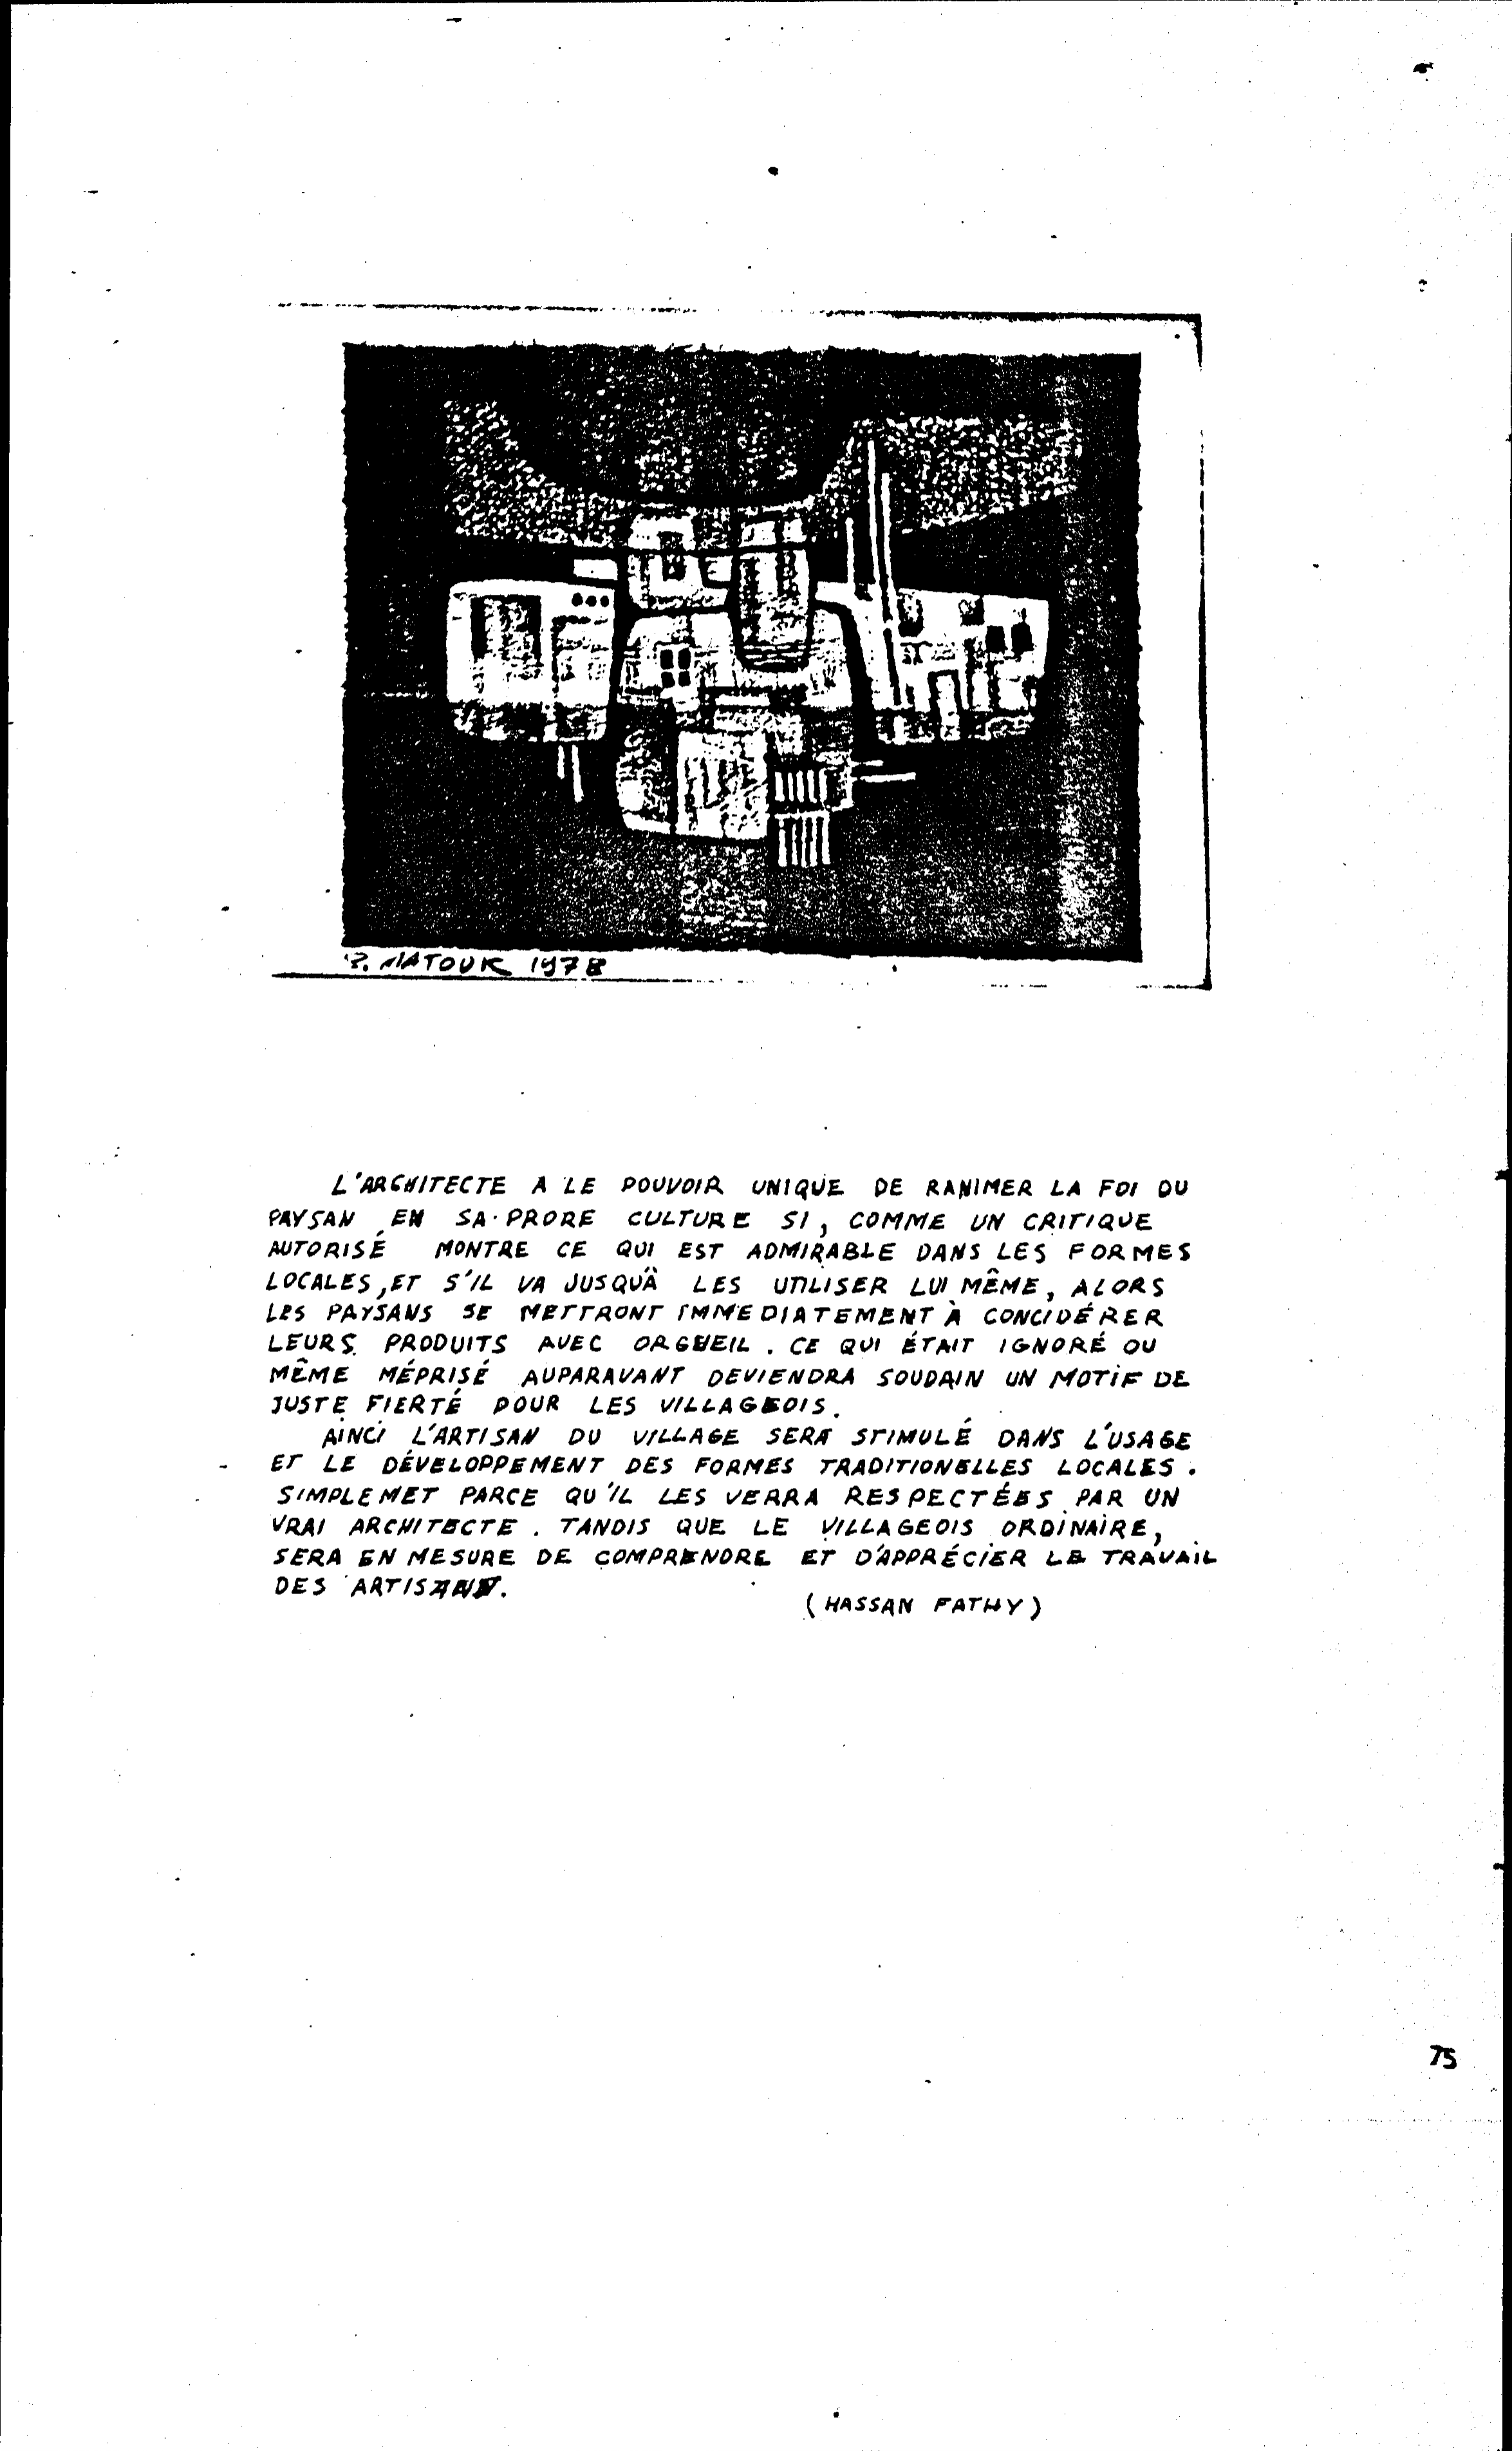 MATOUK 1978
L'ARCHITECTE A LE POUVOIR UNIQUE DE RANIMER LA FOI DU
PAYSAN EN SA PRORE CULTURE SI, COMME UN CRITIQUE
AUTORISÉ MONTRE CE QUI EST ADMIRABLE DANS LES FORMES
LOCALES, ET S'IL VA JUSQU'À LES UTILISER LUI MÊME, ALORS
LES PAYSANS SE METTRONT IMMEDIATEMENT À CONCIDÉRER
LEURS PRODUITS AVEC ORGUEIL. CE QUI ÉTAIT IGNORÉ OU
MÊME MÉPRISÉ AUPARAVANT DEVIENDRA SOUDAIN UN MOTIF DE
JUSTE FIERTÉ POUR LES VILLAGEOIS.
AINCI L'ARTISAN DU VILLAGE SERA STIMULÉ DANS L'USAGE
ET LE DÉVELOPPEMENT DES FORMES TRADITIONELLES LOCALES.
SIMPLEMET PARCE QU'IL LES VERRA RESPECTÉES PAR UN
VRAI ARCHITECTE. TANDIS QUE LE VILLAGEOIS ORDINAIRE,
SERA EN MESURE DE COMPRENDRE ET D'APPRÉCIER LE TRAVAIL
DES ARTISANS.
(HASSAN FATHY)
75